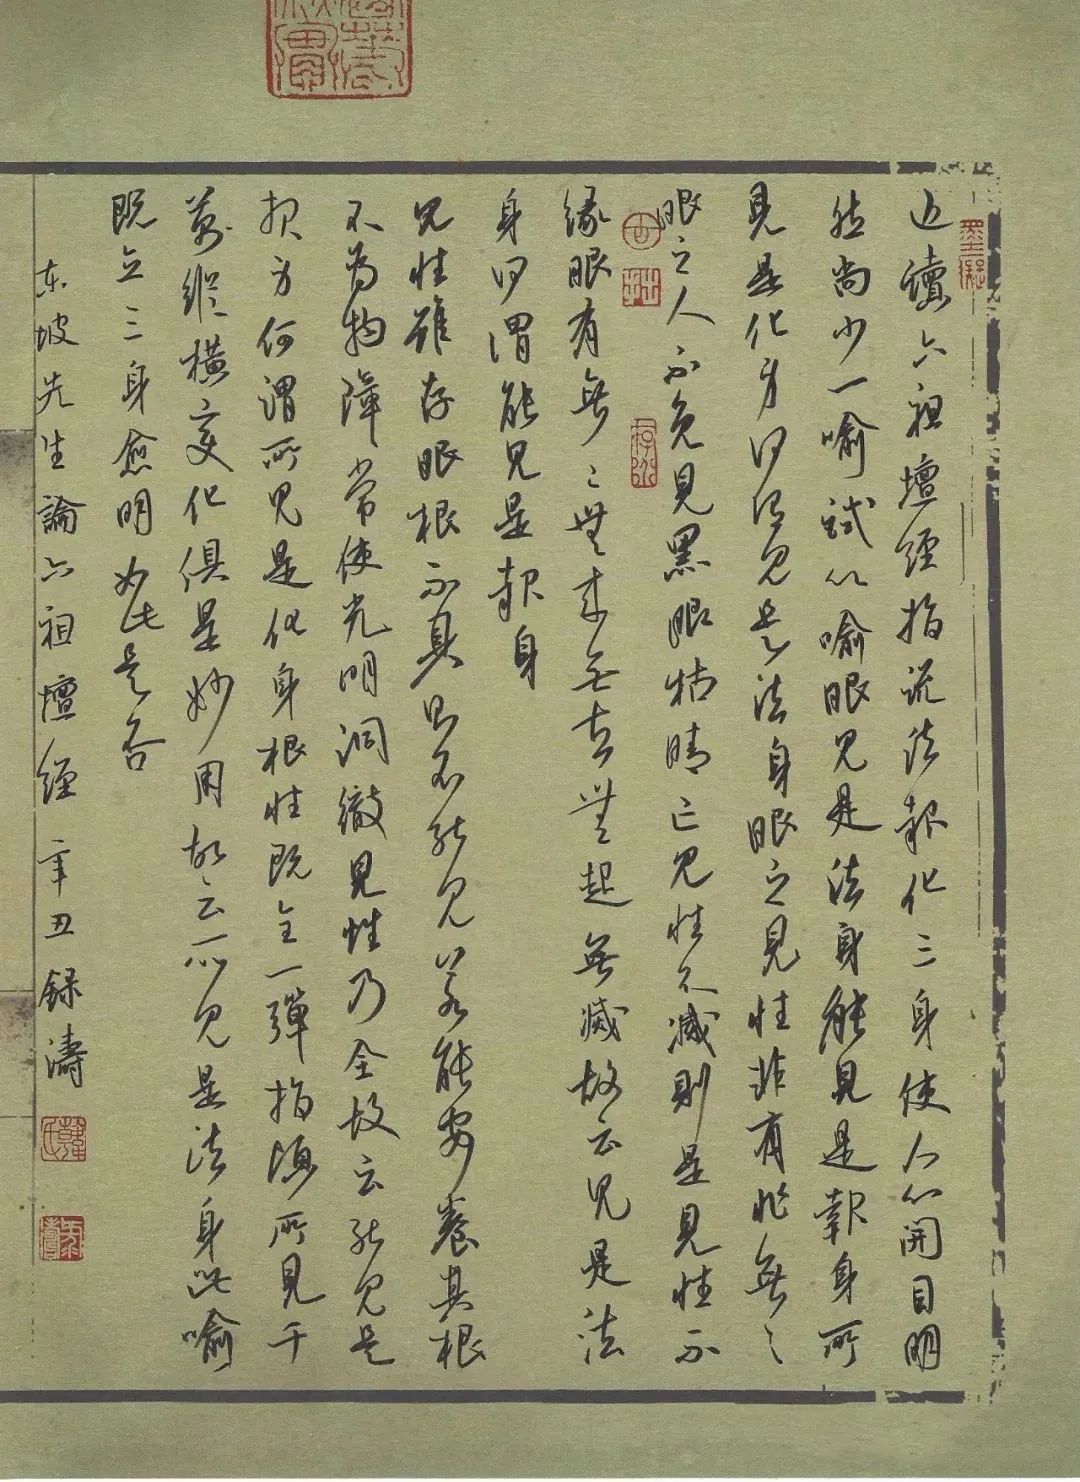 近讀六祖壇經指說法報化三身使人心開目明
然尚少一喻試以喻眼見是法身能見是報身所
見是化身何謂見是法身眼之見性非有非無無
眼之人不免見黑眼枯睛亡見性不滅則是見性不
緣眼有無無來無去無起無滅故云見是法
身何謂能見是報身
見性雖存眼根不具則不能見若能安養其根
不為物障常使光明洞徹見性乃全故云能見是
報身何謂所見是化身根性既全一彈指頃所見千
萬縱橫變化俱是妙用故云所見是法身此喻
既立三身愈明如此是否
東坡先生論六祖壇經 辛丑 録濤
墨凝